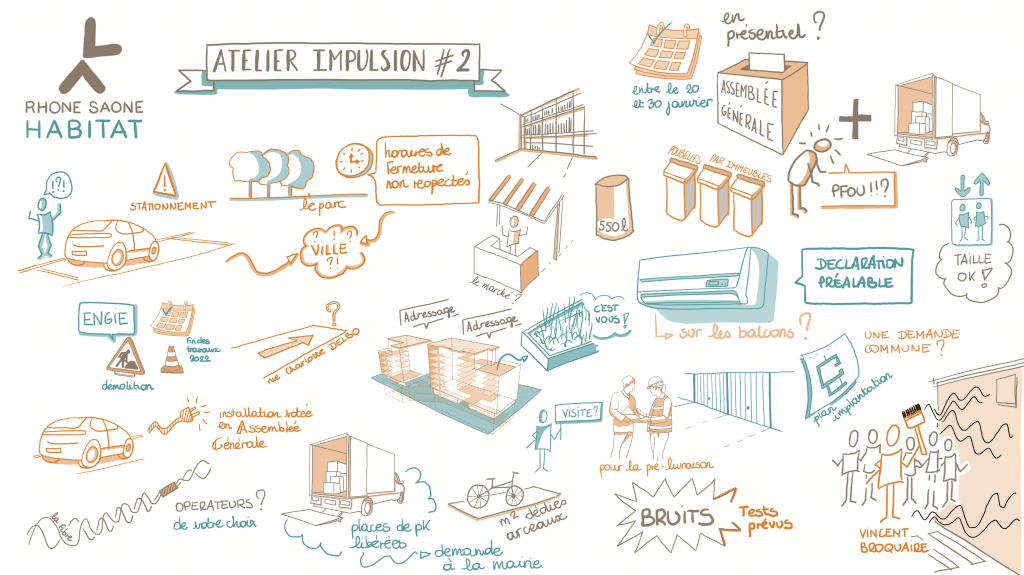 RHONE SAONE
HABITAT
ATELIER IMPULSION #2
entre le 20
et 30 janvier
en
présentiel ?
ASSEMBLÉE
GÉNÉRALE
+
PFOU !!?
!?!
STATIONNEMENT
le parc
horaires de
fermeture
non respectés
? ? ?
VILLE
?!
le marché ?
550 l
POUBELLES PAR IMMEUBLES
TAILLE
OK !
DECLARATION
PRÉALABLE
sur les balcons ?
ENGIE
démolition
Fin des
travaux
2022
?
rue Charlotte DELBO
Adressage
Adressage
C'EST
VOUS !
UNE DEMANDE
COMMUNE ?
plan
implantation
installation votée
en Assemblée
Générale
VISITE ?
pour la pré-livraison
la fibre
OPERATEURS ?
de votre choix
places de pk
libérées
demande
à la mairie
m² dédiés
arceaux
BRUITS
Tests
prévus
VINCENT
BROQUAIRE